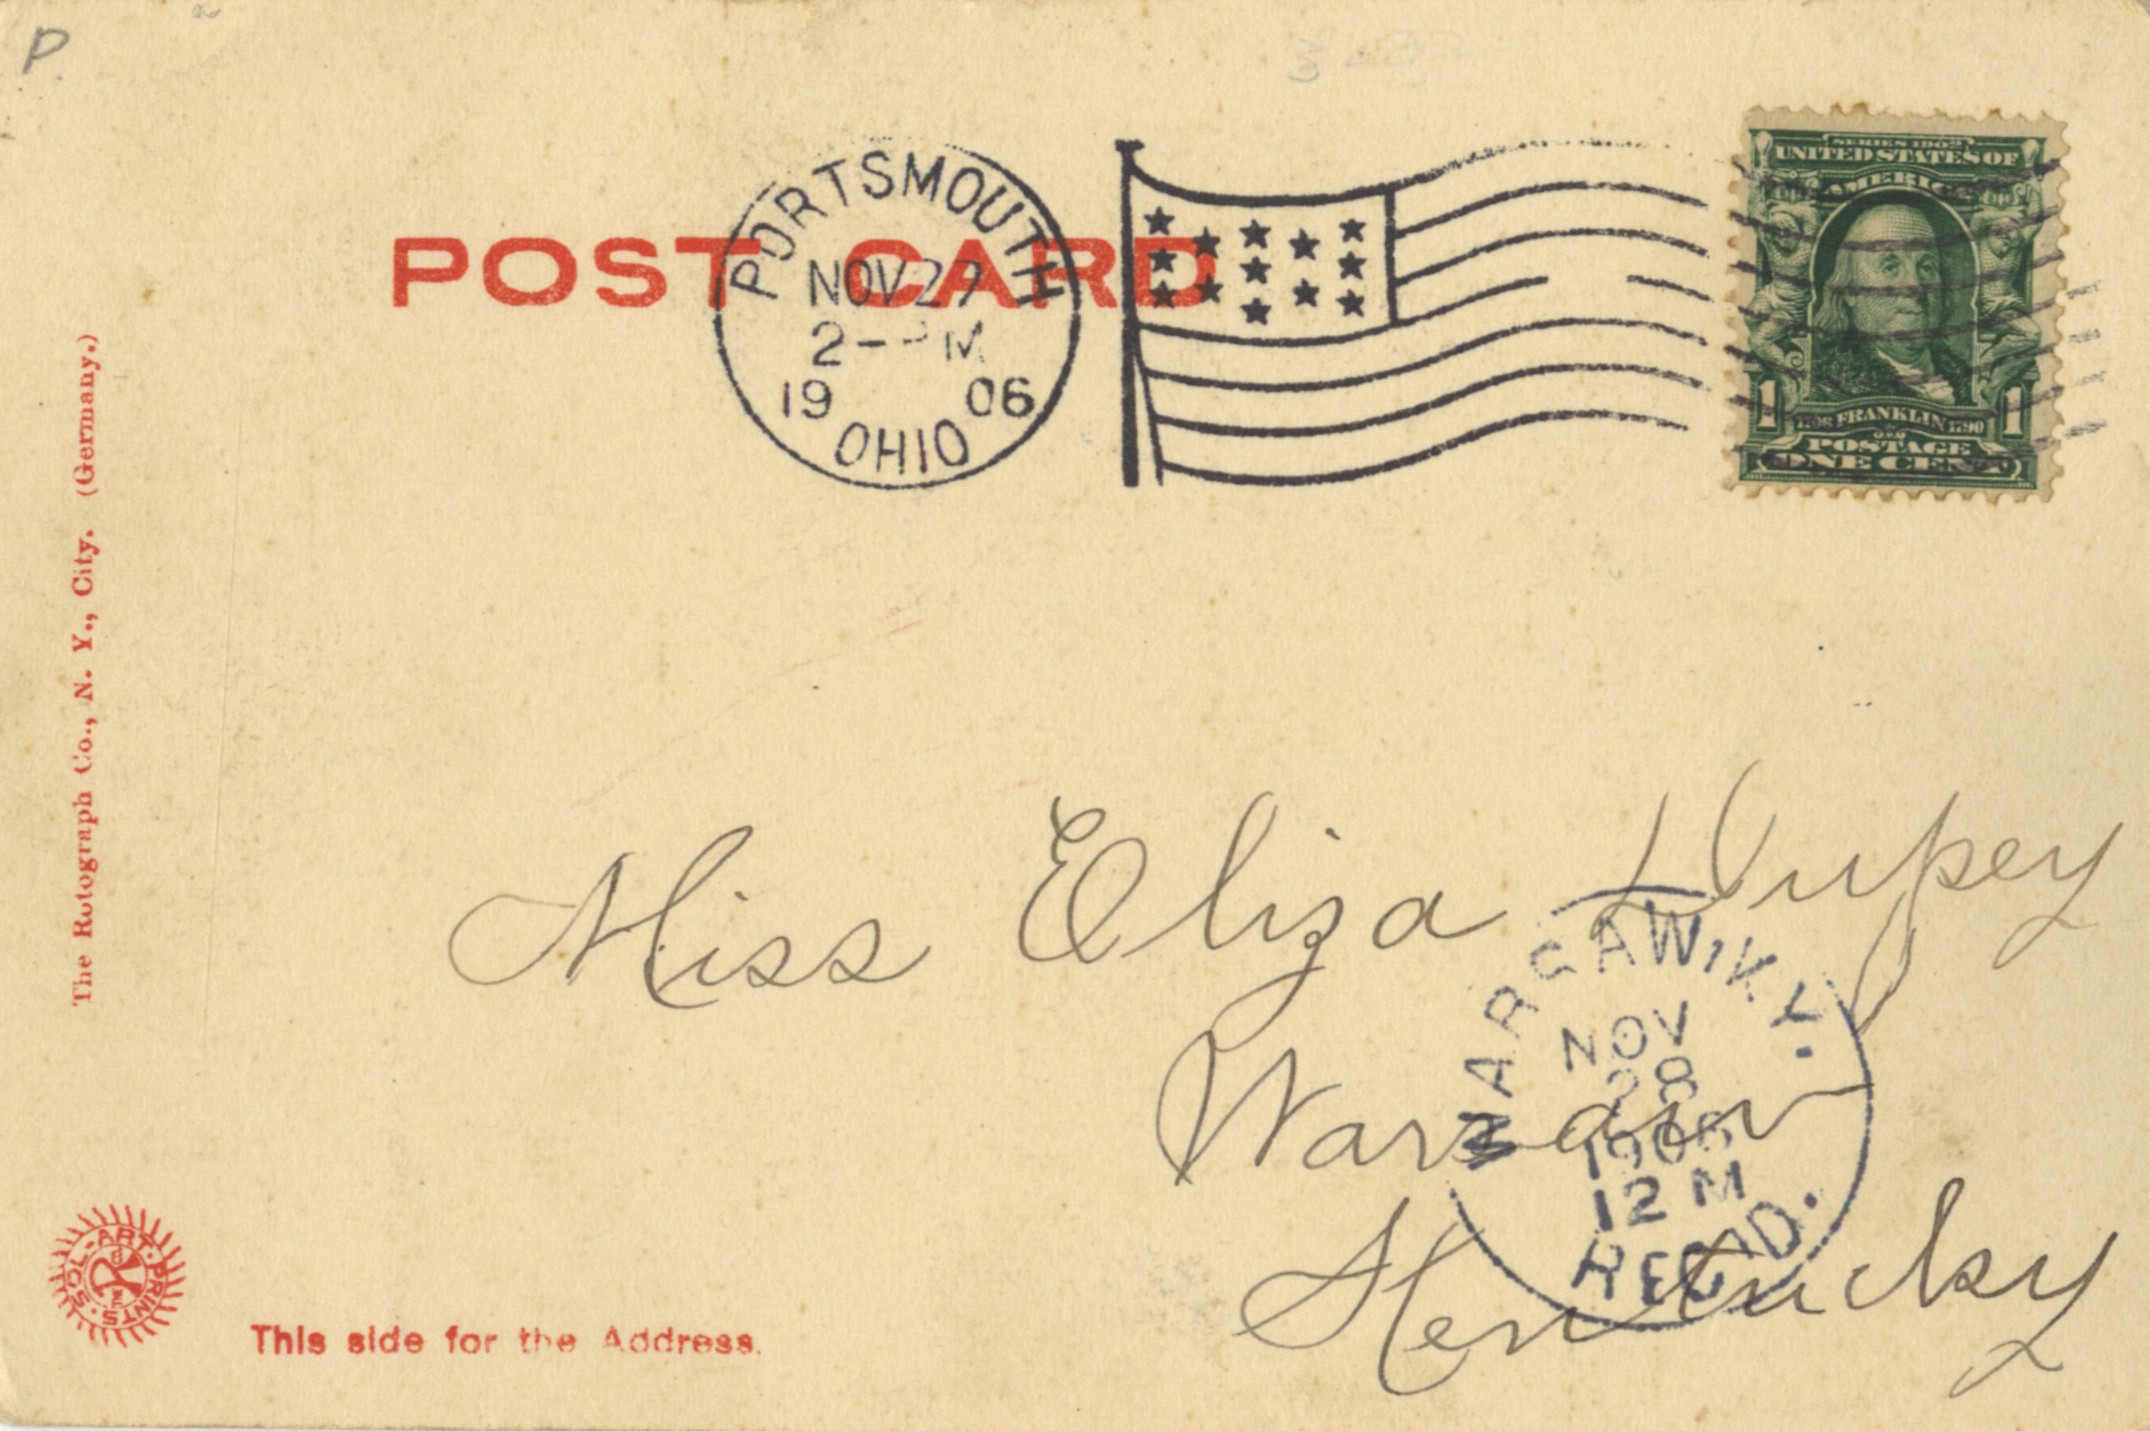 P
POST CARD
PORTSMOUTH
NOV 27
2- PM
19 06
OHIO
SERIES 1902
UNITED STATES OF
AMERICA
1 1
1706 FRANKLIN 1790
POSTAGE
ONE CENT
The Rotograph Co., N. Y., City. (Germany.)
Miss Eliza Dupey
Warsaw
Kentucky
WARSAW, KY.
NOV
28
1906
12 M
REC'D.
SOL-ART-PRINTS
This side for the Address.